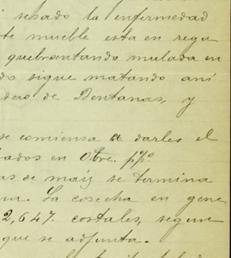 sesado la enfermedad
te mueble esta en regu
quebrantando mulada en
ds sigue matando ani
dero de Ventanas, y
se comiensa a darles el
ados en Obre. ppº
as de maiz se termina
ua. La cosecha en gene
2,647. costales, segun
que se adjunta.